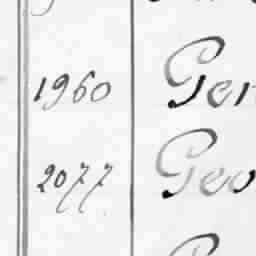 1960 Gen
2077 Geo